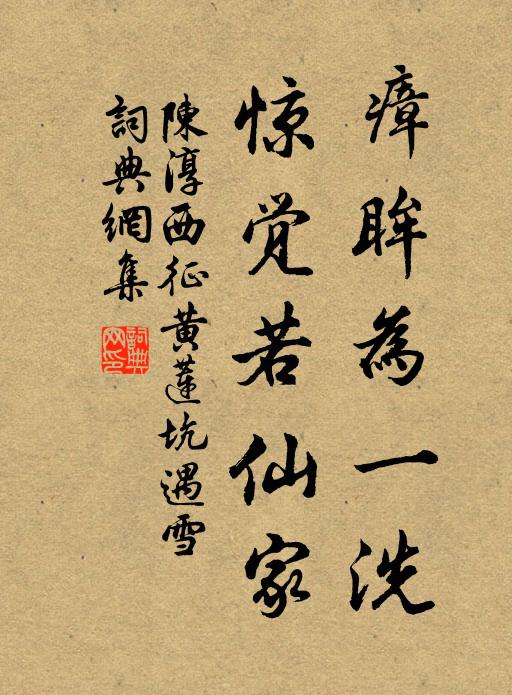 瘴眸為一洗
惊觉若仙家
陳淳西征黄蓮坑遇雪
詞典網集
詞典網印